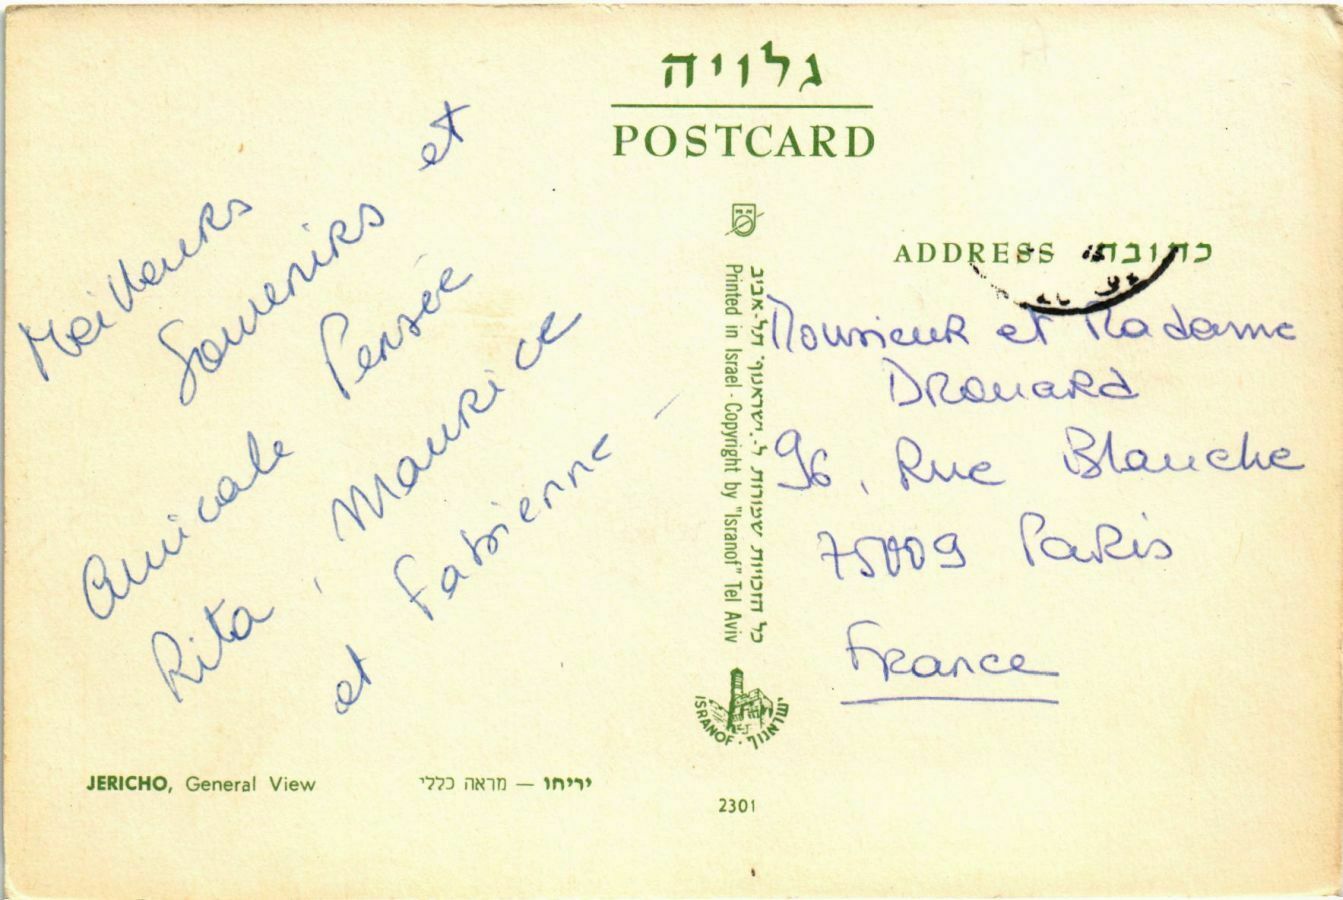 גלויה
POSTCARD
Meilleurs
Souvenirs et
amicale Pensée
Rita, Maurice
et Fabienne
JERICHO, General View
יריחו — מראה כללי
כל הזכויות שמורות ל-"ישראנוף" תל-אביב
Printed in Israel - Copyright by "Isranof" Tel Aviv
ISRANOF · ישראנוף
2301
ADDRESS כתובת
Monsieur et Madame
DROUARD
96, Rue Blanche
75009 Paris
France